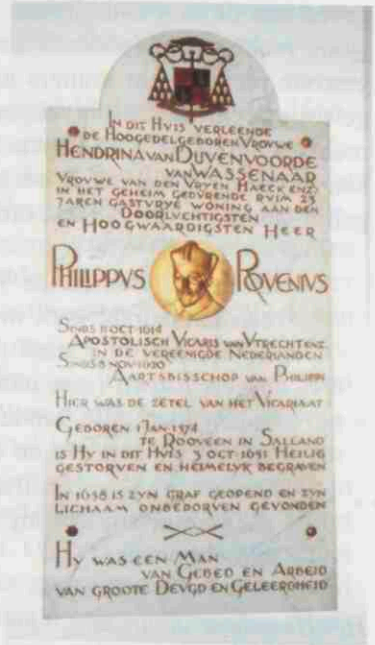 IN DIT HVIS VERLEENDE
DE HOOGEDELGEBOREN VROVWE
HENDRINA VAN DUVENVOORDE
VAN WASSENAAR
VROVWE VAN DEN VRYEN HAECK ENZ.
IN HET GEHEIM GEDVRENDE RVIM 25
JAREN GASTVRYE WONING AAN DEN
DOORLVCHTIGSTEN
EN HOOGWAARDIGSTEN HEER
PHILIPPVS ROVENIVS
SINDS 11 OCT 1614
APOSTOLISCH VICARIS VAN VTRECHT ENZ.
IN DE VEREENIGDE NEDERLANDEN
SINDS 8 NOV 1620
AARTSBISSCHOP VAN PHILIPPI
HIER WAS DE ZETEL VAN HET VICARIAAT
GEBOREN 1 JAN 1574
TE ROOVEEN IN SALLAND
IS HY IN DIT HVIS 3 OCT 1651 HEILIG
GESTORVEN EN HEIMELYK BEGRAVEN
IN 1658 IS ZYN GRAF GEOPEND EN ZYN
LICHAAM ONBEDORVEN GEVONDEN
HY WAS EEN MAN
VAN GEBED EN ARBEID
VAN GROOTE DEVGD EN GELEERDHEID